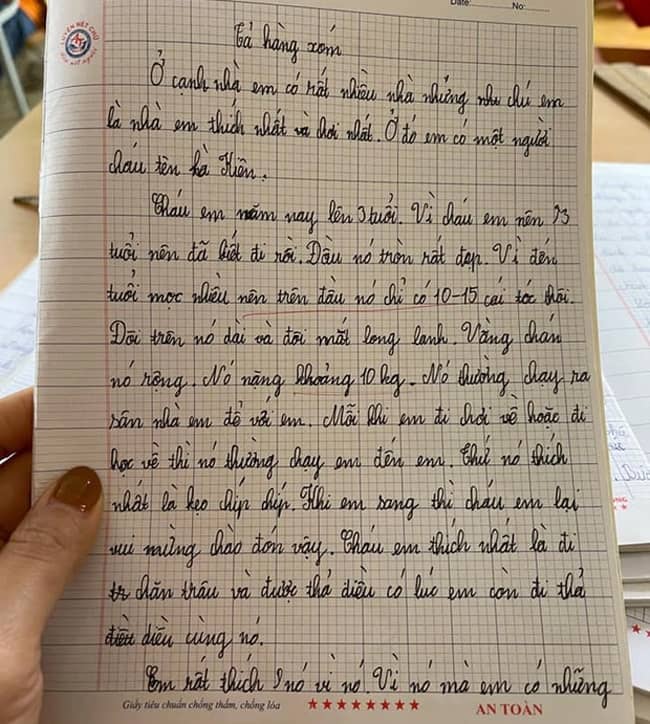 Date: No:
LUYỆN NÉT CHỮ
Tả hàng xóm
Ở cạnh nhà em có rất nhiều nhà nhưng nhà chú em
là nhà em thích nhất và chơi nhất. Ở đó em có một người
cháu tên là Kiên.
Cháu em năm nay lên 3 tuổi. Vì cháu em nên 3
tuổi nên đã biết đi rồi. Đầu nó tròn rất đẹp. Vì đến
tuổi mọc nhiều nên trên đầu nó chỉ có 10-15 cái tóc thôi.
Đôi trên nó dài và đôi mắt long lanh. Vầng chán
nó rộng. Nó nặng khoảng 10 kg. Nó thường chạy ra
sân nhà em để với em. Mỗi khi em đi chơi về hoặc đi
học về thì nó thường chạy em đến em. Thứ nó thích
nhất là kẹo chíp chíp. Khi em sang thì cháu em lại
vui mừng chào đón vậy. Cháu em thích nhất là đi
tr chăn trâu và được thả diều có lúc em còn đi thả
diều cùng nó.
Em rất thích nó vì nó. Vì nó mà em có những
Giấy tiêu chuẩn chống thấm, chống lóa AN TOÀN